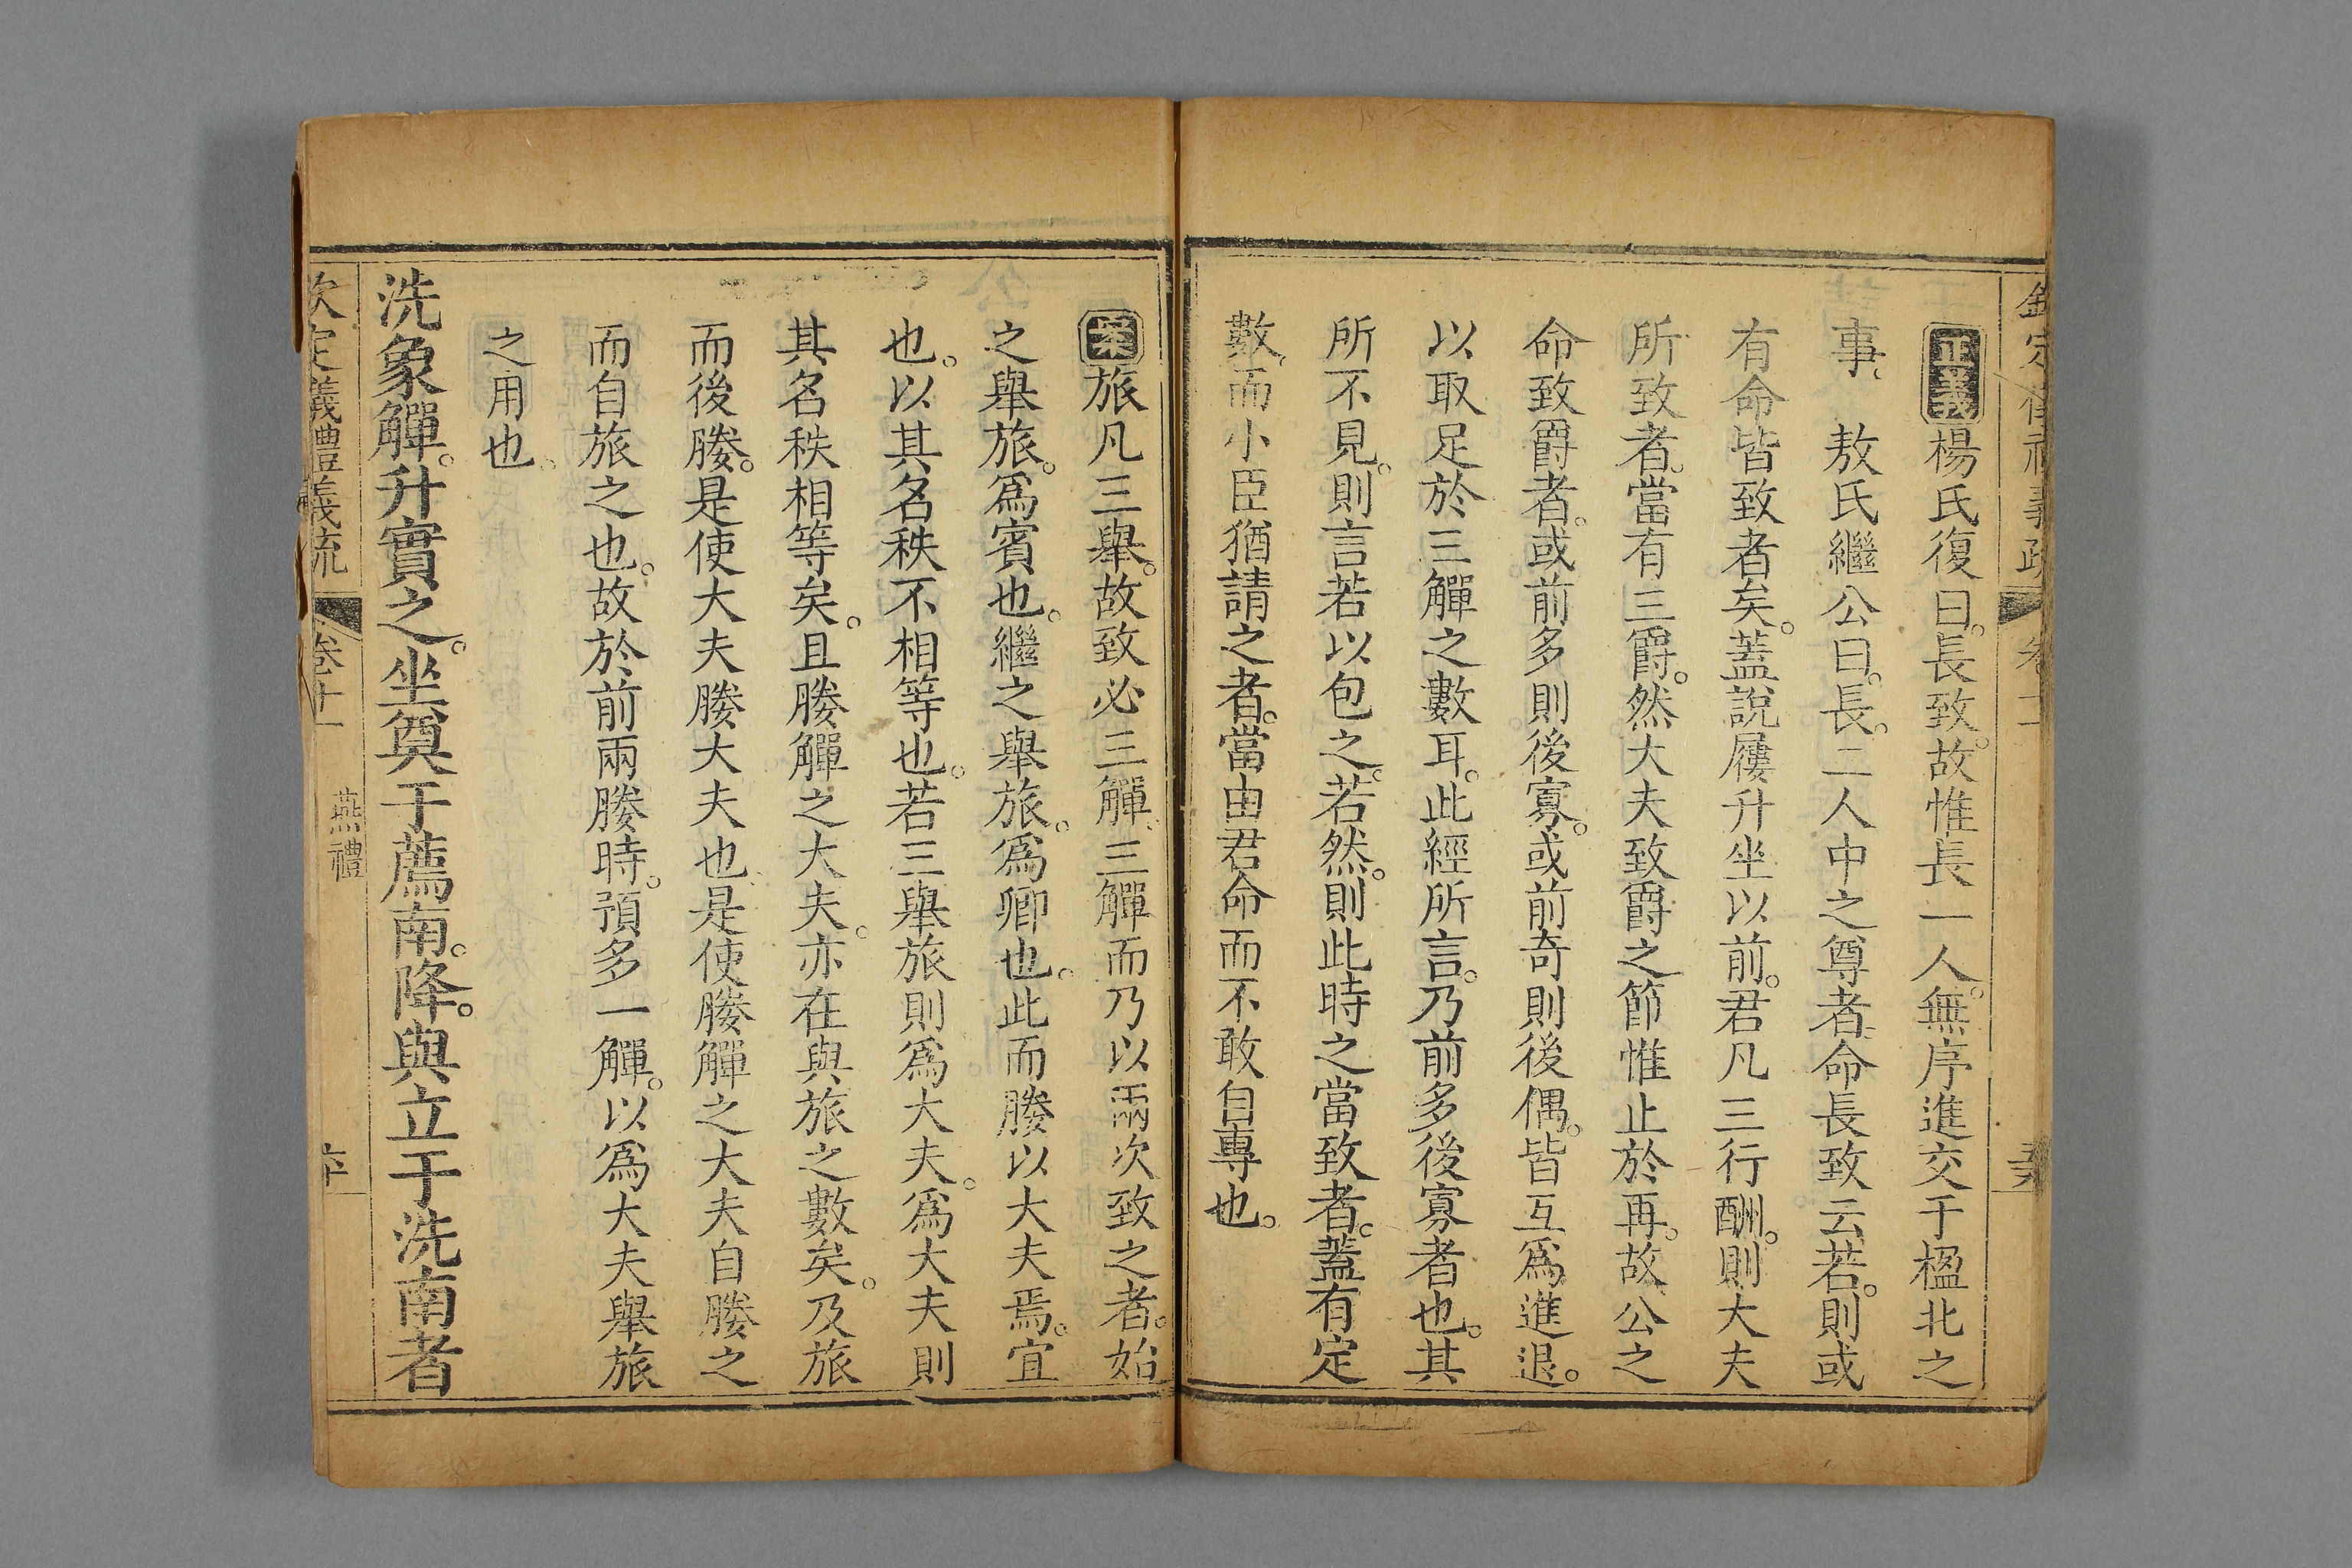 欽定儀禮義疏 卷十一
正義楊氏復曰。長致。故惟長一人。無序進交于楹北之
事。 敖氏繼公曰。長。二人中之尊者。命長致云若。則或
有命皆致者矣。蓋說屨升坐以前。君凡三行酬。則大夫
所致者。當有三爵。然大夫致爵之節惟止於再。故公之
命致爵者。或前多則後寡。或前奇則後偶。皆互爲進退。
以取足於三觶之數耳。此經所言。乃前多後寡者也。其
所不見。則言若以包之。若然。則此時之當致者。蓋有定
數。而小臣猶請之者。當由君命而不敢自專也。
案旅凡三舉。故致必三觶。三觶而乃以兩次致之者。始
之舉旅。爲賓也。繼之舉旅。爲卿也。此而媵以大夫焉。宜
也。以其名秩不相等也。若三舉旅則爲大夫。爲大夫則
其名秩相等矣。且媵觶之大夫。亦在與旅之數矣。及旅
而後媵。是使大夫媵大夫也。是使媵觶之大夫自媵之
而自旅之也。故於前兩媵時。預多一觶。以爲大夫舉旅
之用也。
洗象觶。升實之。坐奠于薦南。降。與立于洗南者
欽定儀禮義疏 卷十一 燕禮